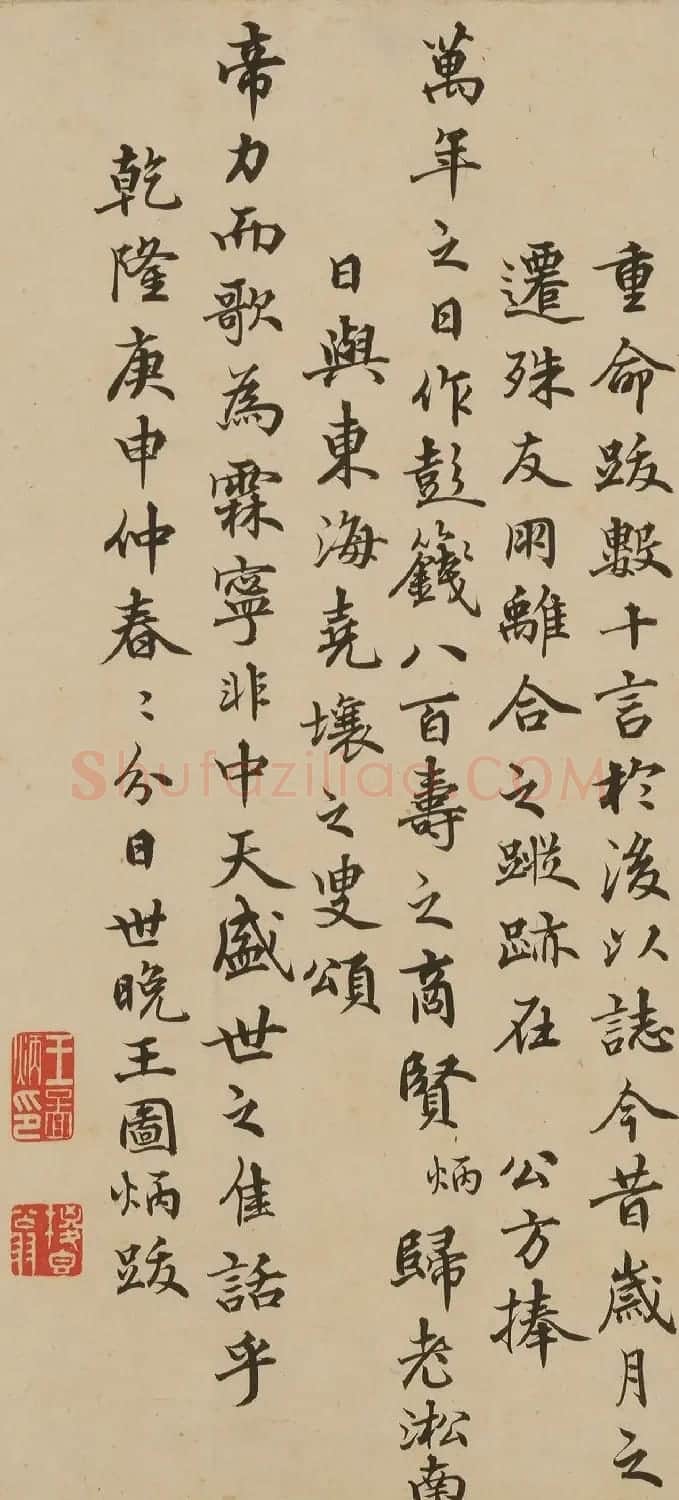 重命跋數十言於後以誌今昔歲月之
遷殊友朋離合之蹤跡在 公方捧
萬年之日作彭籛八百壽之商賢炳歸老淞南
日與東海堯壤之叟頌
帝力而歌為霖寧非中天盛世之佳話乎
乾隆庚申仲春〻分日世晚王圖炳跋
王圖炳印
Shufaziliao.COM